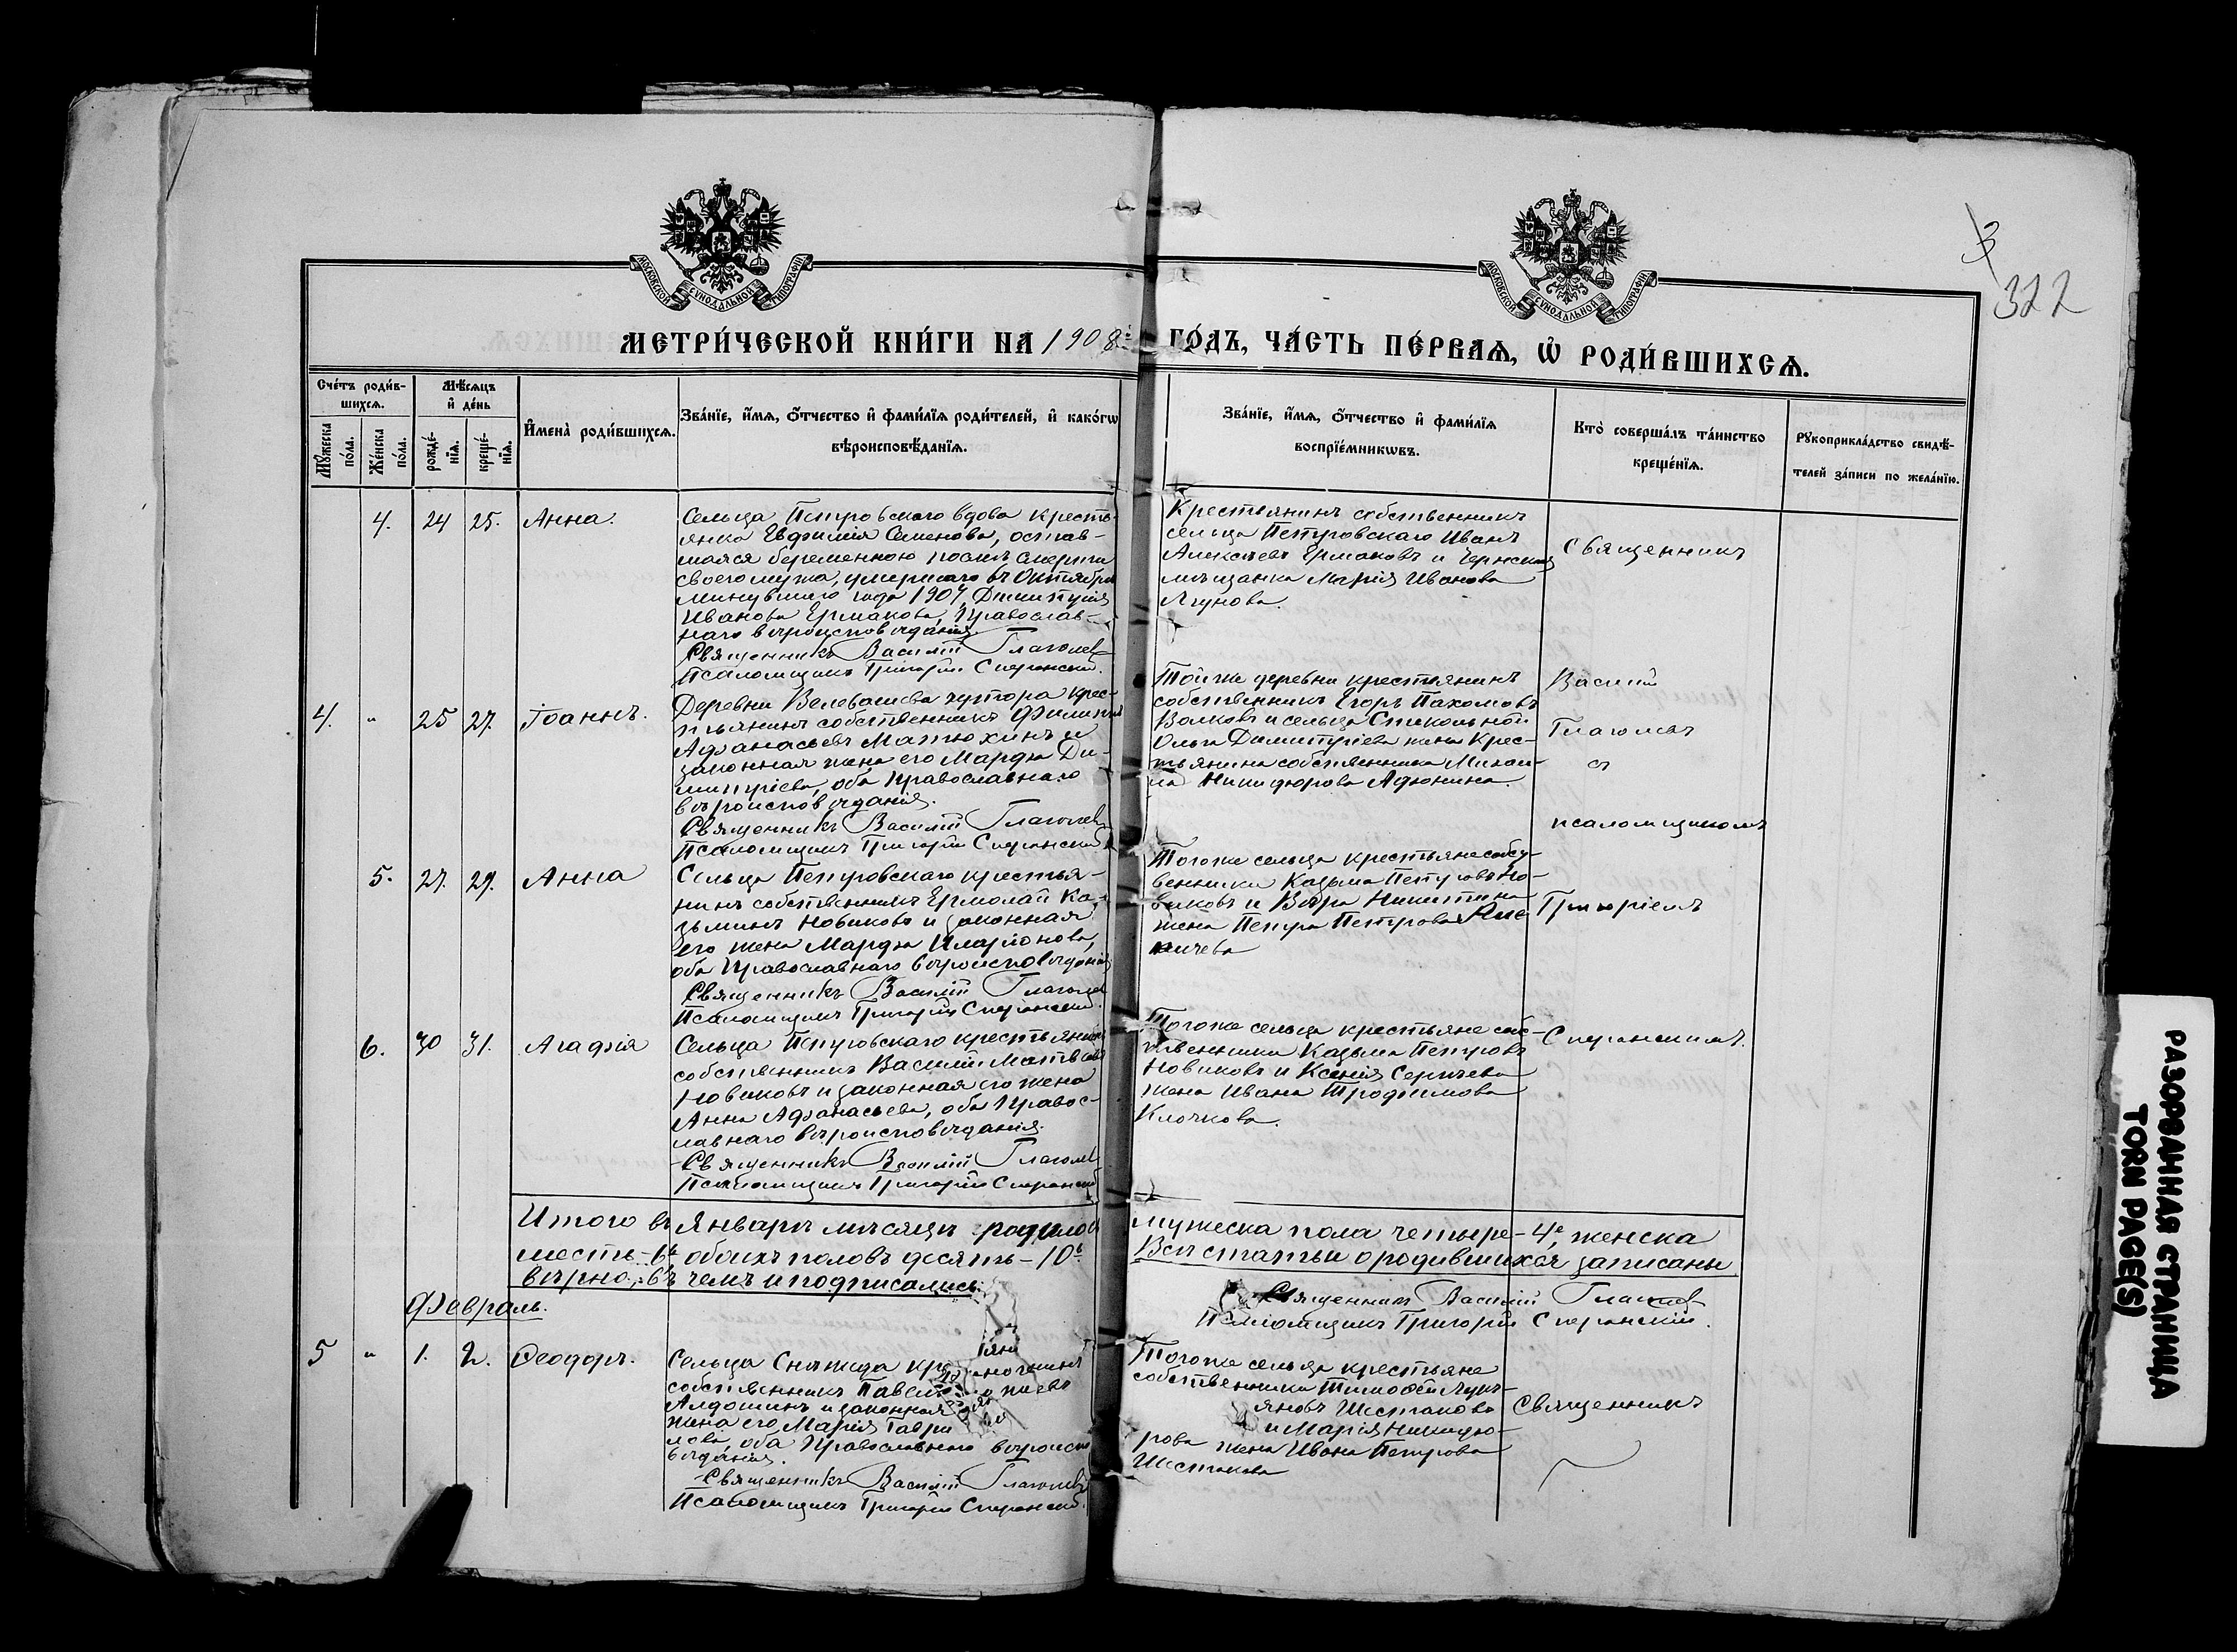 3
322
МОСКОВСКОЙ СѴНОДАЛЬНОЙ ТИПОГРАФІИ
МОСКОВСКОЙ СѴНОДАЛЬНОЙ ТИПОГРАФІИ
МЕТРИ́ЧЕСКОЙ КНИ́ГИ НА 1908й ГО́ДЪ, ЧА́СТЬ ПЕ́РВАѦ, Ѡ҆ РОДИ́ВШИХСѦ.
Сче́тъ роди́в-
шихсѧ.
Мꙋ́жеска по́ла.
Же́нска по́ла.
Мѣ́сѧцъ
и҆ де́нь
рожде́-
нїѧ.
креще́-
нїѧ.
И҆мена̀ роди́вшихсѧ.
Зва́нїе, и҆́мѧ, ѻ҆́тчество и҆ фами́лїѧ роди́телей, и҆ како́гѡ
вѣроисповѣ́данїѧ.
Зва́нїе, и҆́мѧ, ѻ҆́тчество и҆ фами́лїѧ
воспрїе́мникѡвъ.
Кто̀ соверша́лъ та́инство
креще́нїѧ.
Рꙋкоприкла́дство свидѣ́-
телей за́писи по жела́нїю.
4. 24 25. Анна.
Сельца Петровскаго вдова кресть-
янка Евфимія Семенова, остав-
шаяся беременною послѣ смерти
своего мужа, умершаго въ Октябрѣ
минувшаго года 1907, Димитрія
Иванова Ермакова, Православ-
наго вѣроисповѣданія.
Священникъ Василій Глаголев
Псаломщикъ Григорій Сперанскій.
Крестьянинъ собственникъ
сельца Петровскаго Иванъ
Алексѣевъ Ермаковъ и Чернская
мѣщанка Марія Иванова
Ягунова.
Священникъ
4. " 25 27. Іоаннъ.
Деревни хутора крес-
тьянинъ собственникъ Филиппъ
Афанасьевъ Матюхинъ и
законная жена его Марфа Ди-
митріева, оба Православнаго
вѣроисповѣданія.
Священникъ Василій Глаголев
Псаломщикъ Григорій Сперанскій
Той же деревни крестьянинъ
собственникъ Егоръ Пахомовъ
Волковъ и сельца Стекольной
Ольга Димитріева жена Крес-
тьянина собственника Михаи-
ла Никифорова Афонина.
Василій
Глаголевъ
съ
псаломщикомъ
5. 27. 29. Анна
Сельца Петровскаго крестья-
нинъ собственникъ Ермолай Ко-
зьминъ Новиковъ и законная
его жена Марфа Иларіонова,
оба Православнаго вѣроисповѣданія
Священникъ Василій Глаголев
Псаломщикъ Григорій Сперанскій.
Того же сельца крестьяне собст-
венники Козьма Петровъ Но-
виковъ и Вѣра Никитина
жена Петра Петрова
Григоріемъ
6. 30 31. Агафія
Сельца Петровскаго крестьянинъ
собственникъ Василій Матвѣевъ
Новиковъ и законная его жена
Анна Афанасьева, оба Правос-
лавнаго вѣроисповѣданія.
Священникъ Василій Глаголев
Псаломщикъ Григорій Сперанскій
Того же сельца крестьяне собс-
твенники Козьма Петровъ
Новиковъ и Ксенія Сергѣева
жена Ивана Трофимова
Клочкова.
Сперанскимъ.
Итого въ Январѣ мѣсяцѣ родилось мужеска пола четыре - 4е, женска
шесть - 6ть обоихъ половъ десять - 10ь Всѣ статьи о родившихся записаны
вѣрно, въ чемъ и подписались:
Священникъ Василій Глаголев
Псаломщикъ Григорій Сперанскій.
Февраль.
5 " 1. 2. Ѳеодоръ.
Сельца Снѣжида
собственникъ Павелъ
Алдошинъ и законная
жена его Марія Гаври
лова, оба Православнаго вѣроиспо
вѣданія.
Священникъ Василій Глаголев
Псаломщикъ Григорій Сперанскій.
Того же сельца крестьяне
собственники Тимоѳей Лукь-
яновъ Шестаковъ
и Марія Никифо-
рова жена Ивана Петрова
Шестакова
Священникъ
РАЗОРВАННАЯ СТРАНИЦА
TORN PAGE(S)